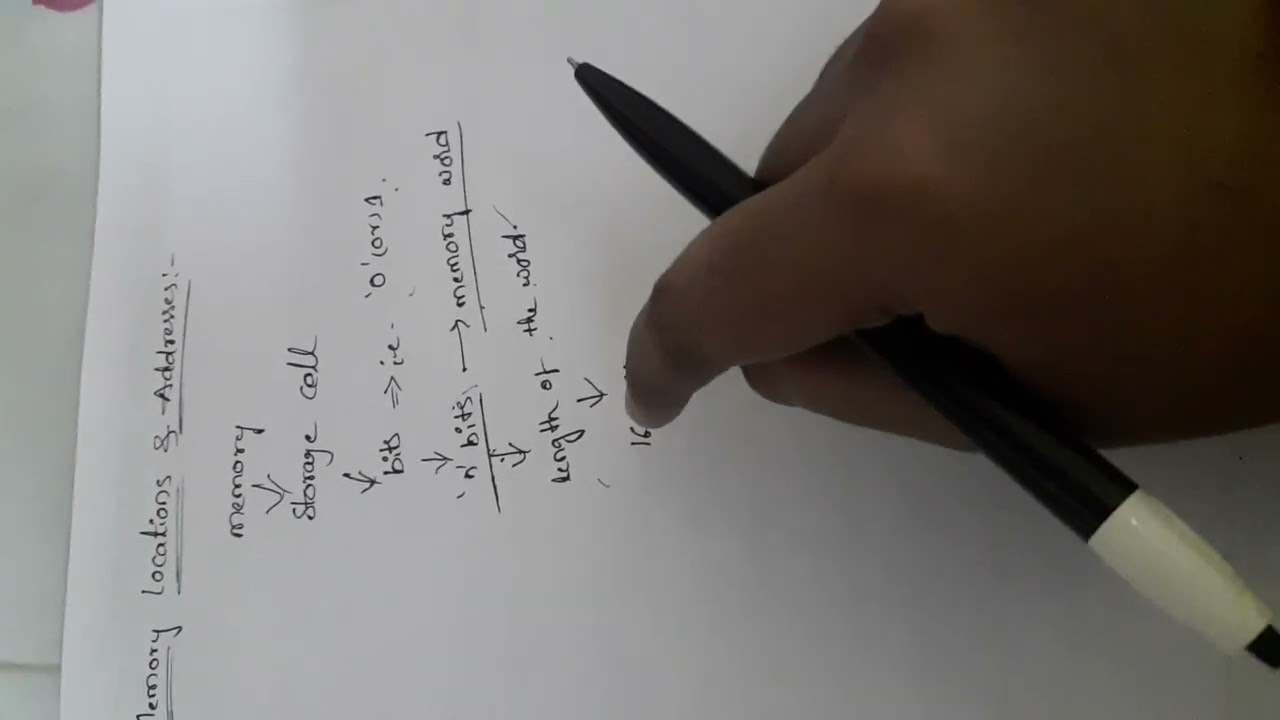 Memory Locations & Addresses:-
memory
↓
Storage cell
↓
bits => i.e. '0' (or) 1.
↓
'n' bits → memory word
↓
length of the word
↓
16